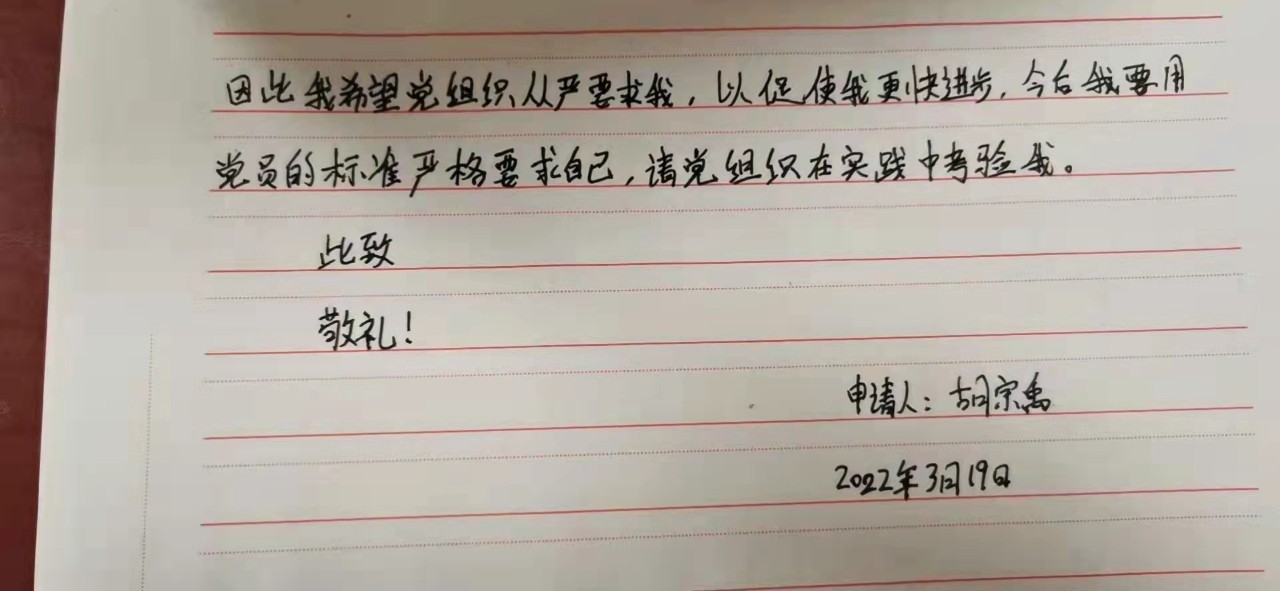 因此我希望党组织从严要求我，以促使我更快进步。今后我要用
党员的标准严格要求自己，请党组织在实践中考验我。
此致
敬礼！
申请人：胡宗禹
2022年3月19日